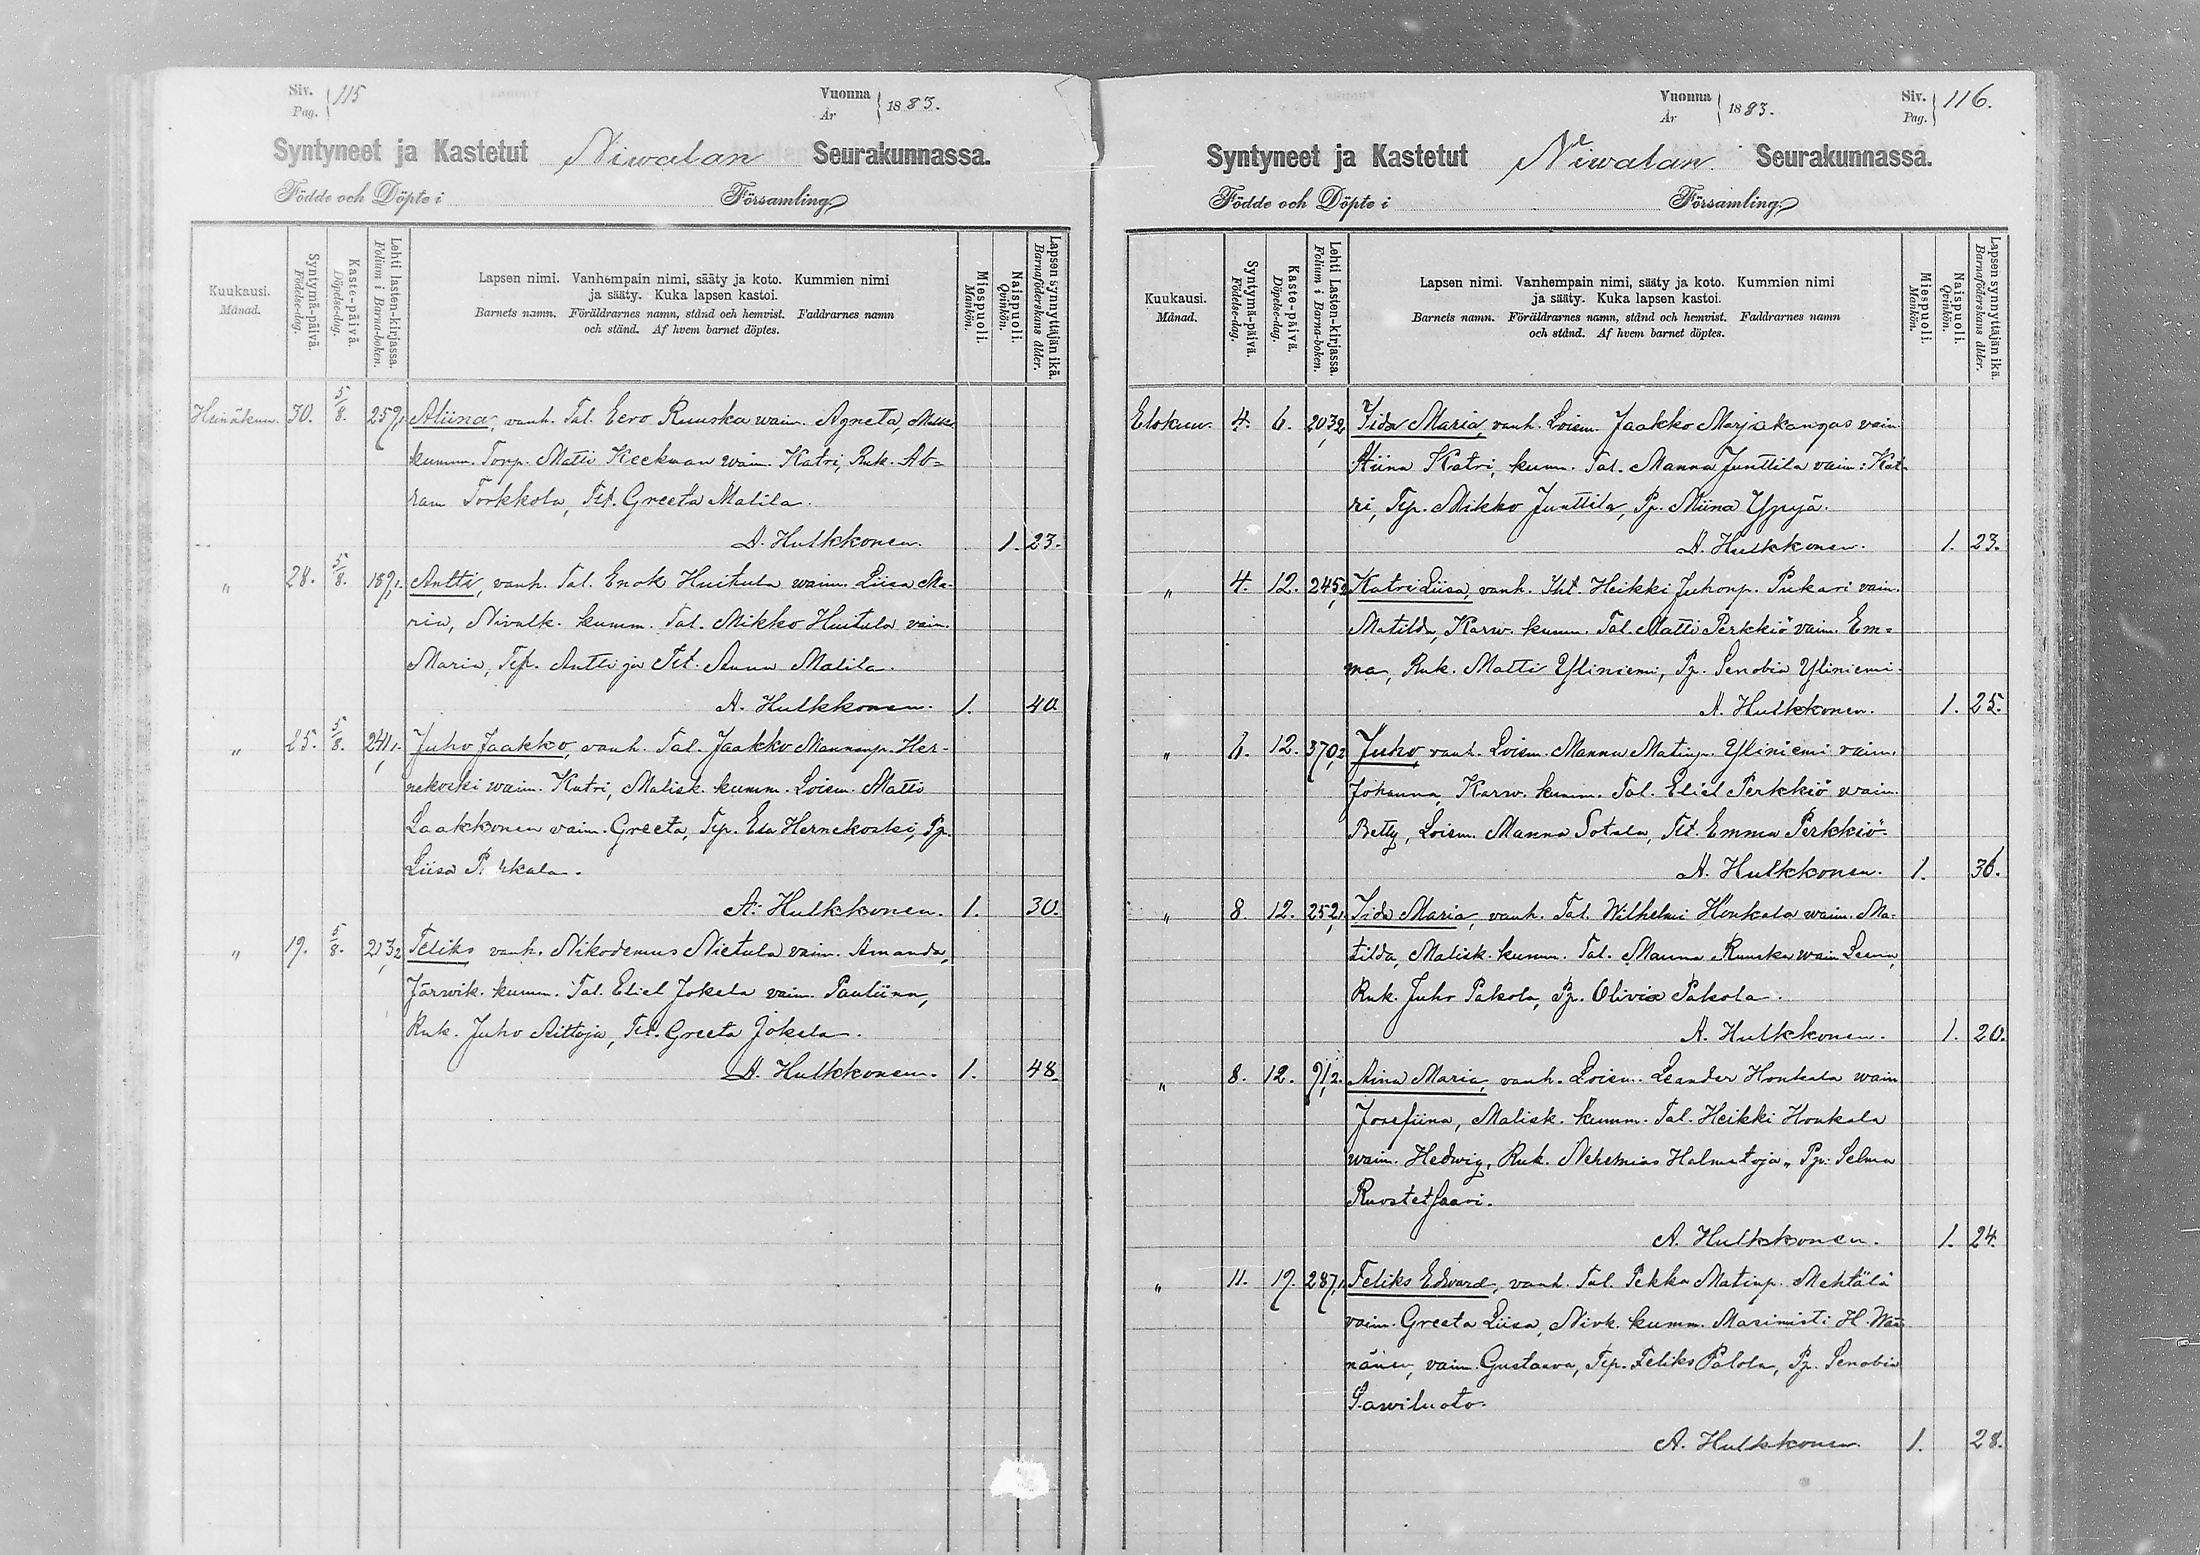 Siv. Pag. 115
Vuonna År 1883.
Syntyneet ja Kastetut Niwalan Seurakunnassa.
Födde och Döpte i Församling
Kuukausi. Månad.
Syntymä-päivä. Födelse-dag.
Kaste-päivä. Döpelse-dag.
Lehti lasten-kirjassa. Folium i Barna-boken.
Lapsen nimi. Vanhempain nimi, sääty ja koto. Kummien nimi
ja sääty. Kuka lapsen kastoi.
Barnets namn. Föräldrarnes namn, stånd och hemvist. Faddrarnes namn
och stånd. Af hvem barnet döptes.
Miespuoli. Mankön.
Naispuoli. Qvinkön.
Lapsen synnyttäjän ikä. Barnaföderskans ålder.
Heinäkuu. 30. 5/8. 259,1 Aliina, vanh. Tal. Eero Ruuska waim. Agneta,
kumm. Torp. Matti Keckman waim. Katri, Ruk. Ab=
ram Torkkola, Tlt. Greeta Malila.
A. Hulkkonen. 1. 23.
„ 28. 5/8. 189,1 Antti, vanh. Tal. Enok Huitula waim. Liisa Ma-
ria, Nivalk. kumm. Tal. Mikko Huitula vaim.
Maria, Tlp. Antti ja Tlt. Anna Malila.
A. Hulkkonen. 1. 40
„ 25. 5/8. 241,1. Juho Jaakko, vanh. Tal. Jaakko Mannunp. Her-
nekoski waim. Katri, Malisk. kumm. Loism. Matti
Laakkonen vaim. Greeta, Tlp. Esa Hernekoski, Pp.
Liisa
A. Hulkkonen. 1. 30.
„ 19. 5/8. 213,2 Feliks vanh. Nikodemus Nietula vaim. Amanda,
Järwik. kumm. Tal. Eliel Jokela vaim. Pauliina,
Ruk. Juho Aittoja, Tlt. Greeta Jokela.
A. Hulkkonen. 1. 48.
Vuonna År 1883.
Siv. Pag. 116.
Syntyneet ja Kastetut Niwalan. Seurakunnassa.
Födde och Döpte i Församling.
Kuukausi. Månad.
Syntymä-päivä. Födelse-dag.
Kaste-päivä. Döpelse-dag.
Lehti Lasten-kirjassa. Folium i Barna-boken.
Lapsen nimi. Vanhempain nimi, sääty ja koto. Kummien nimi
ja sääty. Kuka lapsen kastoi.
Barnets namn. Föräldrarnes namn, stånd och hemvist. Faddrarnes namn
och stånd. Af hvem barnet döptes.
Miespuoli. Mankön.
Naispuoli. Qvinkön.
Lapsen synnyttäjän ikä. Barnaföderskans ålder.
Elokuu. 4. 6. 203,2 Iida Maria, vanh. Loism. Jaakko Marjakangas vaim.
Stiina Katri, kumm. Tal. Mannu Junttila vaim: Kat-
ri, Tlp. Mikko Junttila, Pp. Miina Yppyä.
A. Hulkkonen. 1. 23.
„ 4. 12. 245,2 Katri Liisa, vanh. Tht. Heikki Juhonp. Pukari vaim.
Matilda, Karw. kumm. Tal. Matti Perkkiö vaim. Em=
ma, Ruk. Matti Yliniemi, Pp. Senobia Yliniemi.
A. Hulkkonen. 1. 25.
„ 6. 12. 370,2 Juho, vanh. Loism. Mannu Matinp. Yliniemi vaim.
Johanna, Karw. kumm. Tal. Eliel Perkkiö waim.
Betty, Loism. Mannu Sotala, Tlt. Emma Perkkiö.
A. Hulkkonen. 1. 36.
„ 8. 12. 252,1. Iida Maria, vanh. Tal. Wilhelmi Honkala waim. Ma-
tilda, Malisk. kumm. Tal. Mannu Ruuska waim Leena,
Ruk. Juho Pakola, Pp. Olivia Pakola.
A. Hulkkonen. 1. 20.
„ 8. 12. 91,2. Aina Maria, vanh. Loism. Leander Honkala waim
Josefiina, Malisk. kumm. Tal. Heikki Honkala
waim. Hedwig, Ruk. Nehemias Halmetoja, Pp. Selma
Ruostetsaari.
A. Hulkkonen. 1. 24.
„ 11. 19. 287,1 Feliks Edward, vanh. Tal. Pekka Matinp. Mehtälä
vaim. Greeta Liisa, Nivk. kumm. Masinisti H. Wää
nänen, vaim. Gustaava, Tlp. Feliks Palola, Pp. Senobia
Sawiluoto.
A. Hulkkonen. 1. 28.